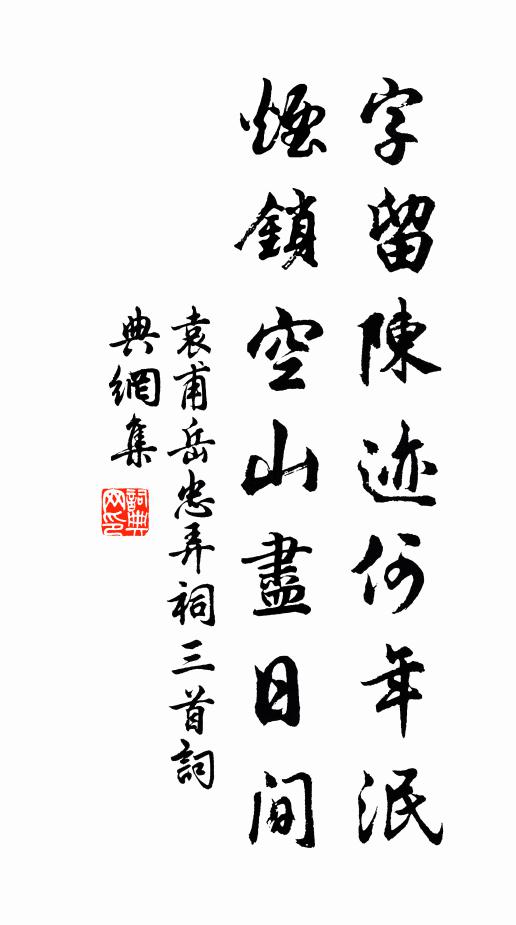 字留陳迹何年泯
煙鎖空山盡日间
袁甫岳忠弄祠三首詞
典網集
詞典网印